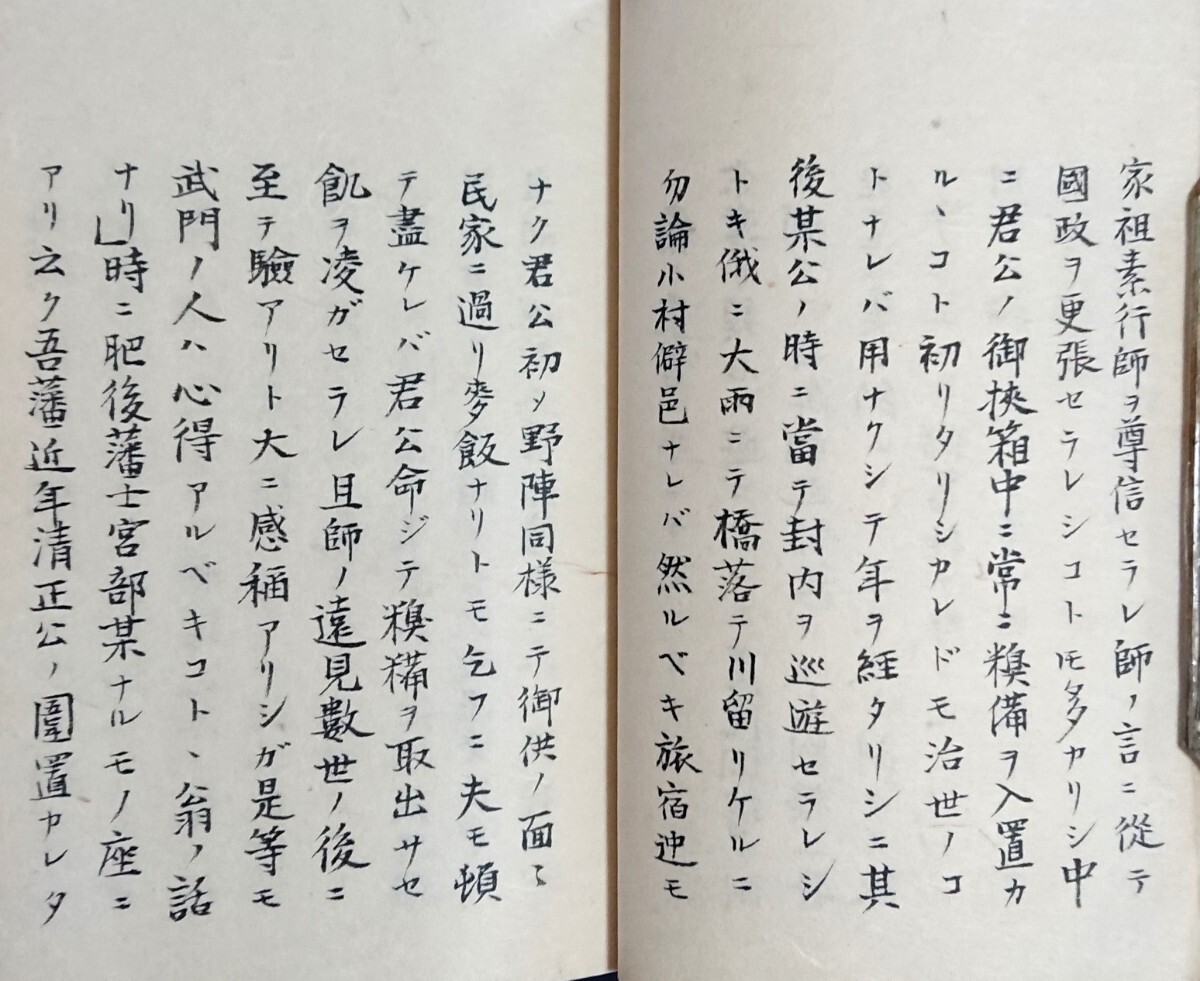 家祖素行師ヲ尊信セラレ師ノ言ニ從テ
國政ヲ更張セラレシコトㇳモ多カリシ中
ニ君公ノ御挾箱中ニ常ニ糗備ヲ入置カ
ルヽコト初リタリシカレドモ治世ノコ
トナレバ用ナクシテ年ヲ經タリシニ其
後某公ノ時ニ當テ封内ヲ巡遊セラレシ
トキ俄ニ大雨ニテ橋落テ川留リケルニ
勿論小村僻邑ナレバ然ルベキ旅宿迚モ
ナク君公初メ野陣同様ニテ御供ノ面〻
民家ニ過リ麥飯ナリトモ乞フニ夫モ頓
テ盡ケレバ君公命ジテ糗糒ヲ取出サセ
飢ヲ凌ガセラレ且師ノ遠見數世ノ後ニ
至テ驗アリト大ニ感稱アリシガ是等モ
武門ノ人ハ心得アルベキコトヽ翁ノ話
ナリ」時ニ肥後藩士宮部某ナルモノ座ニ
アリ云ク吾藩近年清正公ノ圍置カレタ